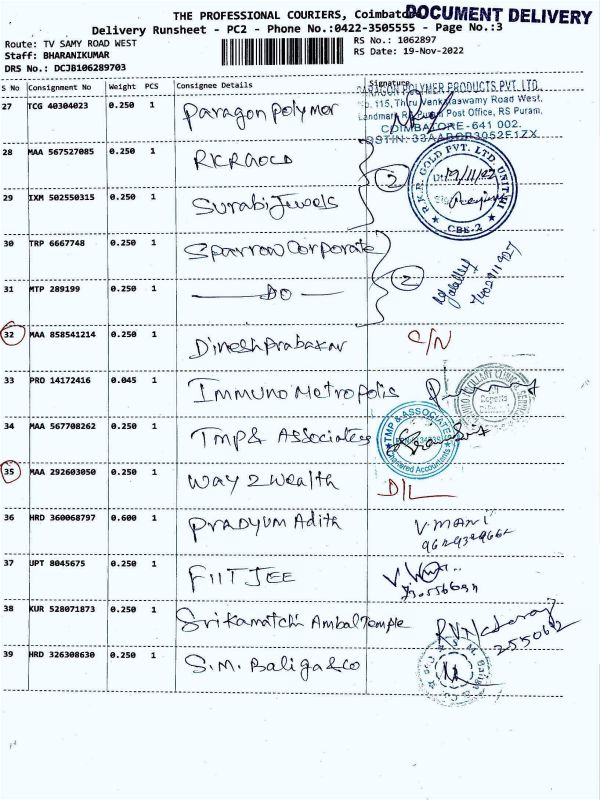 THE PROFESSIONAL COURIERS, Coimbatore
DOCUMENT DELIVERY
Delivery Runsheet - PC2 - Phone No.:0422-3505555 - Page No.:3
Route: TV SAMY ROAD WEST
RS No.: 1062897
Staff: BHARANIKUMAR
RS Date: 19-Nov-2022
DRS No.: DCJB106289703
S No Consignment No Weight PCS Consignee Details Signature
27 TCG 40304023 0.250 1 Paragon Polymer
PARAGON POLYMER PRODUCTS PVT. LTD.
No. 115, Thiru Venkataswamy Road West,
Post Office, RS Puram,
COIMBATORE - 641 002.
28 MAA 567527085 0.250 1 RKRGOLD
29 IXM 502550315 0.250 1 Surabi Jewels
2
R.K.R. GOLD PVT. LTD, UNIT
CBE-2
30 TRP 6667748 0.250 1 Sparrow Corporate
31 MTP 289199 0.250 1 DO
2
32 MAA 858541214 0.250 1 Dinesh Prabakar C/N
33 PRO 14172416 0.045 1 Immuno Metropolis
34 MAA 567708262 0.250 1 Tmp & Associates
TMP & ASSOCIATES
Chartered Accountants
35 MAA 292603050 0.250 1 Way 2 Wealth D/L
36 HRD 360068797 0.600 1 PRADYUM Adith V. MANI
37 UPT 8045675 0.250 1 FIITJEE
38 KUR 528071873 0.250 1 Srikamatchi Ambal Temple
2550612
39 HRD 326308630 0.250 1 S.M. Baliga & co